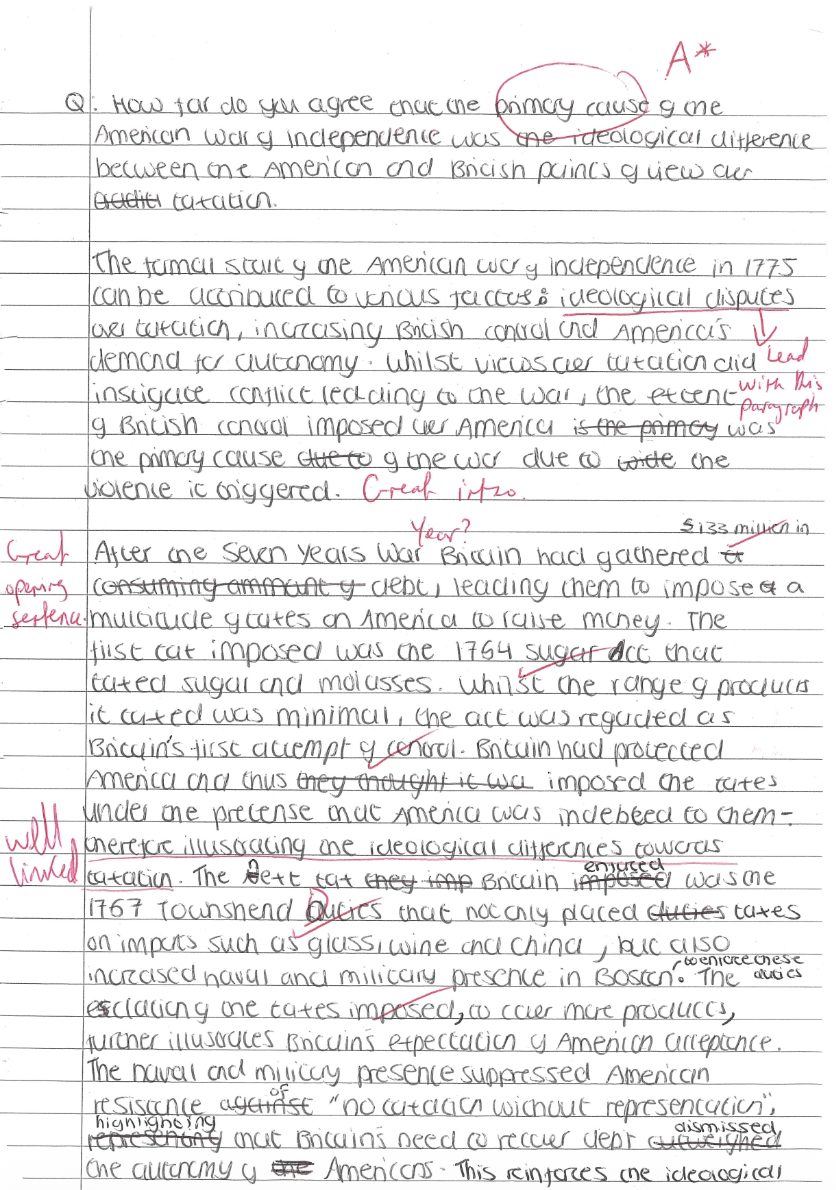 A*
Q: How far do you agree that the primary cause of the
American War of Independence was the ideological difference
between the American and British points of view over
taxation.
The formal start of the American War of Independence in 1775
can be attributed to various factors: ideological disputes
over taxation, increasing British control and America's
demand for autonomy. Whilst views over taxation did
Lead
with this
paragraph
instigate conflict leading to the war, the extent
of British control imposed over America is the primary was
the primary cause due to of the war due to wide the
violence it triggered. Great intro.
Year?
£133 million in
Great
opening
sentence
After the Seven Years War Britain had gathered
consuming ammount of debt, leading them to impose a
multitude of taxes on America to raise money. The
first tax imposed was the 1764 sugar Act that
taxed sugar and molasses. Whilst the range of products
it taxed was minimal, the act was regarded as
Britain's first attempt of control. Britain had protected
America and thus they thought it wa imposed the taxes
under the pretense that America was indebted to them-
well
linked
therefore illustrating the ideological differences towards
enforced
taxation. The next tax they imp Britain imposed was the
1767 Townshend Duties that not only placed duties taxes
on imports such as glass, wine and china, but also
to enforce these
duties
increased naval and military presence in Boston. The
escalation of the taxes imposed, to cover more products,
further illusrates Britain's expectation of American acceptance.
The naval and military presence suppressed American
of
resistance against "no taxation without representation",
highlighting
dismissed
representing that Britain's need to recover debt outweighed
the autonomy of the Americans. This reinforces the ideological